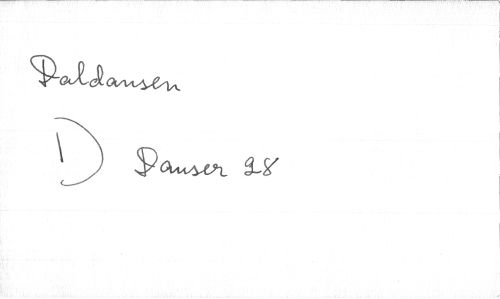 Daldansen
D Danser 28